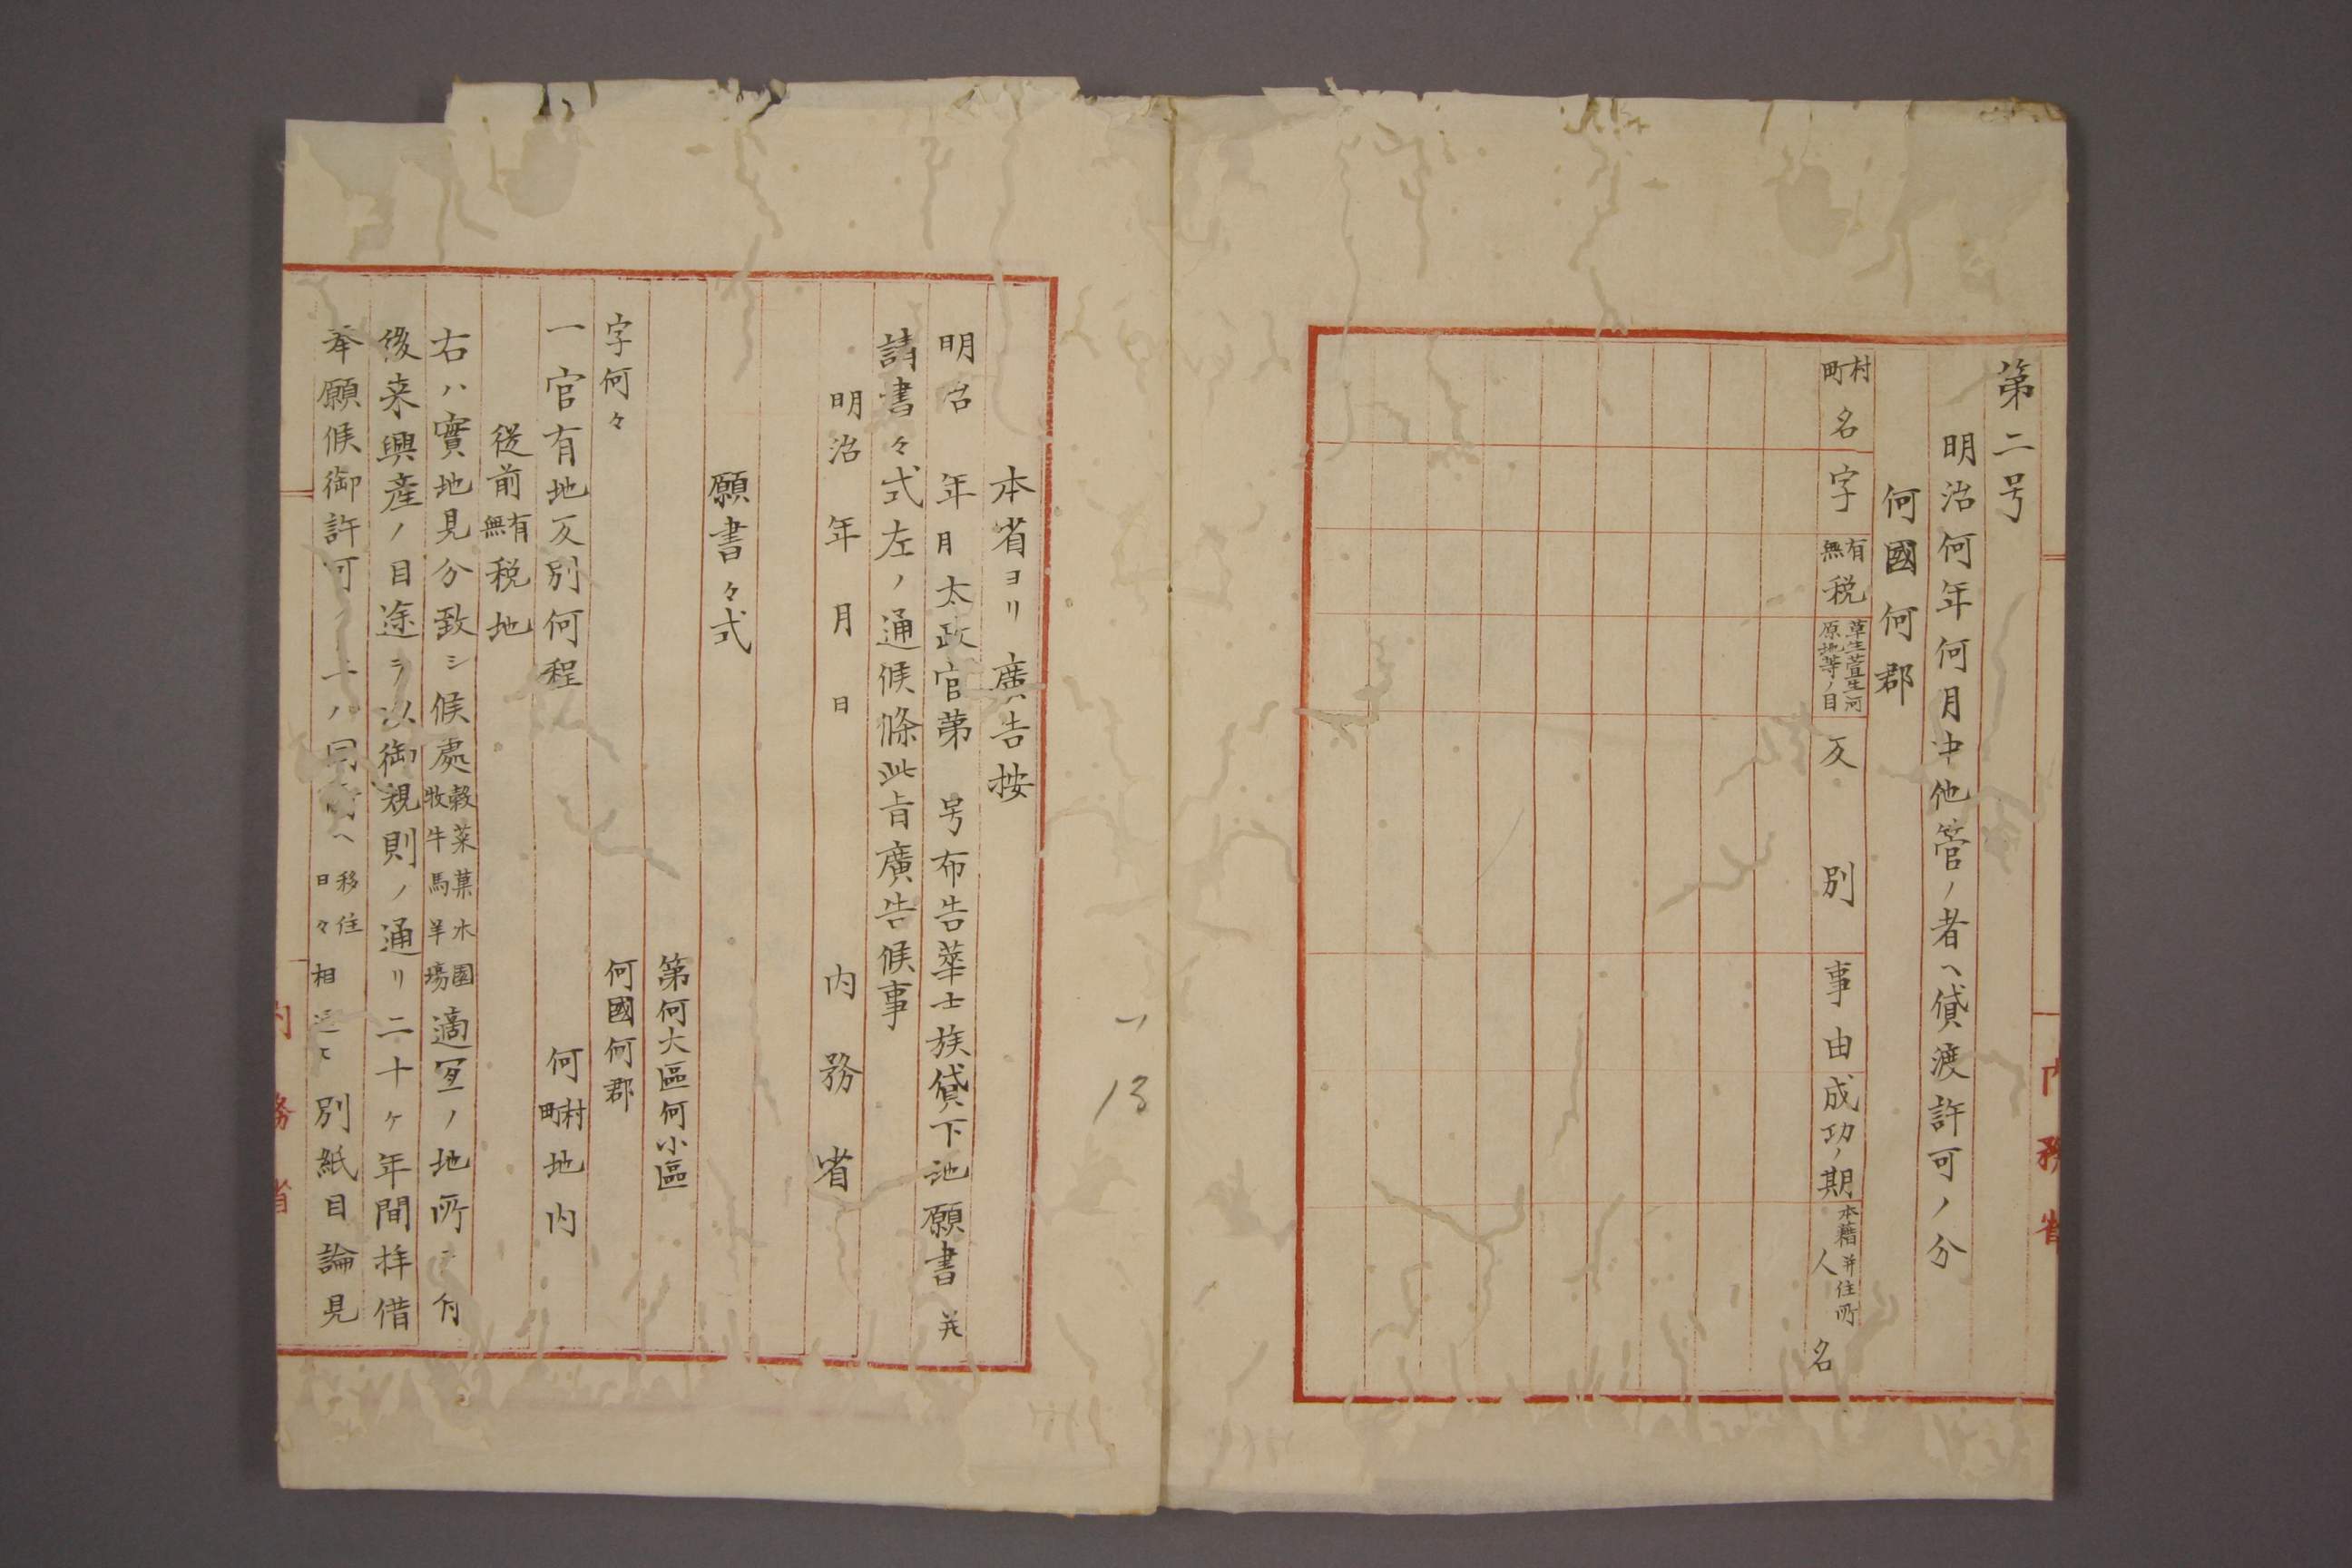 第二号
明治何年何月中他管ノ者ヘ貸渡許可ノ分
何國何郡
村町名
字
有無税
草生萱生河原地等ノ目
反別
事由
成功ノ期
本籍并住所
人名
内務省
一13
本省ヨリ廣告按
明治 年 月太政官第 号布告華士族貸下地願書并
請書々式左ノ通候條此旨廣告候事
明治 年 月 日 内務省
願書々式
第何大區何小區
字何々 何國何郡
一官有地反別何程 何村町地内
従前有無税地
右ハ實地見分致シ候處穀菜菓木園牧牛馬羊場適宜ノ地所ニ付
後来興産ノ目途ヲ以御規則ノ通リ二十ケ年間拝借
奉願候御許可ノ上ハ同所ヘ移住日々相 別紙目論見
内務省